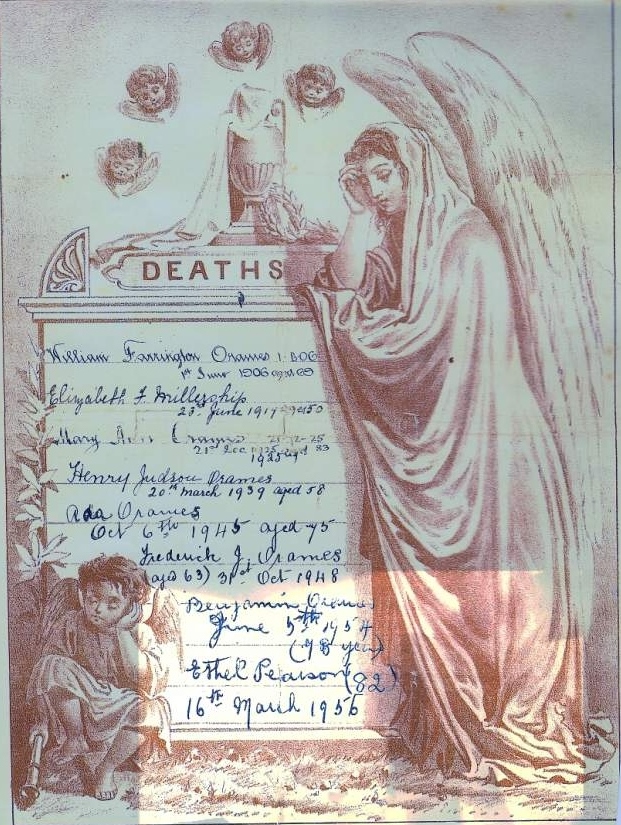 DEATHS
William Farrington Orames 1-6-06
1st June 1906 aged 69
Elizabeth F Millership
23rd June 1917 aged 50
Mary Ann Orames 21-12-25
21st Dec 1925 aged 83
1925
Henry Judson Orames
20th March 1939 aged 58
Ada Orames
Oct 6th 1945 aged 75
Frederick J. Orames
(aged 63) 31st Oct 1948
Benjamin Orames
June 5th 1954
(78 years)
Ethel Pearson (82)
16th March 1956